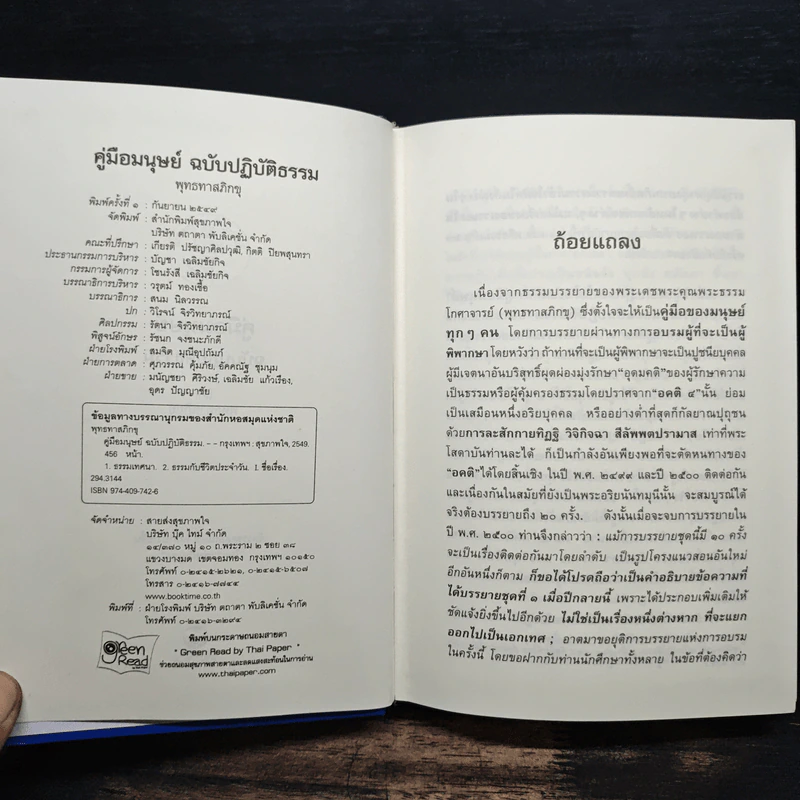 คู่มือมนุษย์ ฉบับปฏิบัติธรรม
พุทธทาสภิกขุ
พิมพ์ครั้งที่ ๑ : กันยายน ๒๕๔๙
จัดพิมพ์ : สำนักพิมพ์สุขภาพใจ
บริษัท ตถาตา พับลิเคชั่น จำกัด
คณะที่ปรึกษา : เกียรติ ปรัชญาศิลปวุฒิ, กิตติ ปิยพสุนทรา
ประธานกรรมการบริหาร : บัญชา เฉลิมชัยกิจ
กรรมการผู้จัดการ : โชนรังสี เฉลิมชัยกิจ
บรรณาธิการบริหาร : วรุตม์ ทองเชื้อ
บรรณาธิการ : สนม นิลวรรณ
ปก : วิโรจน์ จิรวิทยาภรณ์
ศิลปกรรม : รัตนา จิรวิทยาภรณ์
พิสูจน์อักษร : รัชนก จงชนะภักดี
ฝ่ายโรงพิมพ์ : สมจิต มุณีอุปถัมภ์
ฝ่ายการตลาด : ศุภวรรณ คุ้มภัย, อัคคณัฐ ชุมนุม
ฝ่ายขาย : มนัญชยา ศิริวงษ์, เฉลิมชัย แก้วเรือง,
อุดร ปัญญาชัย
ข้อมูลทางบรรณานุกรมของสำนักหอสมุดแห่งชาติ
พุทธทาสภิกขุ
คู่มือมนุษย์ ฉบับปฏิบัติธรรม. - - กรุงเทพฯ : สุขภาพใจ, 2549.
456 หน้า.
1. ธรรมเทศนา. 2. ธรรมกับชีวิตประจำวัน. I. ชื่อเรื่อง.
294.3144
ISBN 974-409-742-6
จัดจำหน่าย : สายส่งสุขภาพใจ
บริษัท บุ๊ค ไทม์ จำกัด
๑๔/๓๗๐ หมู่ ๑๐ ถ.พระราม ๒ ซอย ๓๘
แขวงบางมด เขตจอมทอง กรุงเทพฯ ๑๐๑๕๐
โทรศัพท์ ๐-๒๔๑๕-๒๖๒๑, ๐-๒๔๑๕-๖๕๐๗
โทรสาร ๐-๒๔๑๖-๗๗๔๔
www.booktime.co.th
พิมพ์ที่ : ฝ่ายโรงพิมพ์ บริษัท ตถาตา พับลิเคชั่น จำกัด
โทรศัพท์ ๐-๒๔๑๖-๓๒๙๔
green Read
พิมพ์บนกระดาษถนอมสายตา
" Green Read by Thai Paper "
ช่วยถนอมสุขภาพสายตาและลดแสงสะท้อนในการอ่าน
www.thaipaper.com
ถ้อยแถลง
เนื่องจากธรรมบรรยายของพระเดชพระคุณพระธรรม
โกศาจารย์ (พุทธทาสภิกขุ) ซึ่งตั้งใจจะให้เป็นคู่มือของมนุษย์
ทุก ๆ คน โดยการบรรยายผ่านทางการอบรมผู้ที่จะเป็นผู้
พิพากษา โดยหวังว่า ถ้าท่านที่จะเป็นผู้พิพากษาจะเป็นปูชนียบุคคล
ผู้มีเจตนาอันบริสุทธิ์ผุดผ่องมุ่งรักษา "อุดมคติ" ของผู้รักษาความ
เป็นธรรมหรือผู้คุ้มครองธรรมโดยปราศจาก "อคติ ๔" นั้น ย่อม
เป็นเสมือนหนึ่งอริยบุคคล หรืออย่างต่ำที่สุดก็กัลยาณปุถุชน
ด้วยการละสักกายทิฏฐิ วิจิกิจฉา สีลัพพตปรามาส เท่าที่พระ
โสดาบันท่านละได้ ก็เป็นกำลังอันเพียงพอที่จะตัดหนทางของ
"อคติ" ได้โดยสิ้นเชิง ในปี พ.ศ. ๒๔๙๙ และปี ๒๕๐๐ ติดต่อกัน
และเนื่องกันในสมัยที่ยังเป็นพระอริยนันทมุนีนั้น จะสมบูรณ์ได้
จริงต้องบรรยายถึง ๒๐ ครั้ง. ดังนั้นเมื่อจะจบการบรรยายใน
ปี พ.ศ. ๒๕๐๐ ท่านจึงกล่าวว่า : แม้การบรรยายชุดนี้มี ๑๐ ครั้ง
จะเป็นเรื่องติดต่อกันมาโดยลำดับ เป็นรูปโครงแนวสอนอันใหม่
อีกอันหนึ่งก็ตาม ก็ขอได้โปรดถือว่าเป็นคำอธิบายข้อความที่
ได้บรรยายชุดที่ ๑ เมื่อปีกลายนี้ เพราะได้ประกอบเพิ่มเติมให้
ชัดแจ้งยิ่งขึ้นไปอีกด้วย ไม่ใช่เป็นเรื่องหนึ่งต่างหาก ที่จะแยก
ออกไปเป็นเอกเทศ ; อาตมาขอยุติการบรรยายแห่งการอบรม
ในครั้งนี้ โดยขอฝากกับท่านนักศึกษาทั้งหลาย ในข้อที่ต้องคิดว่า